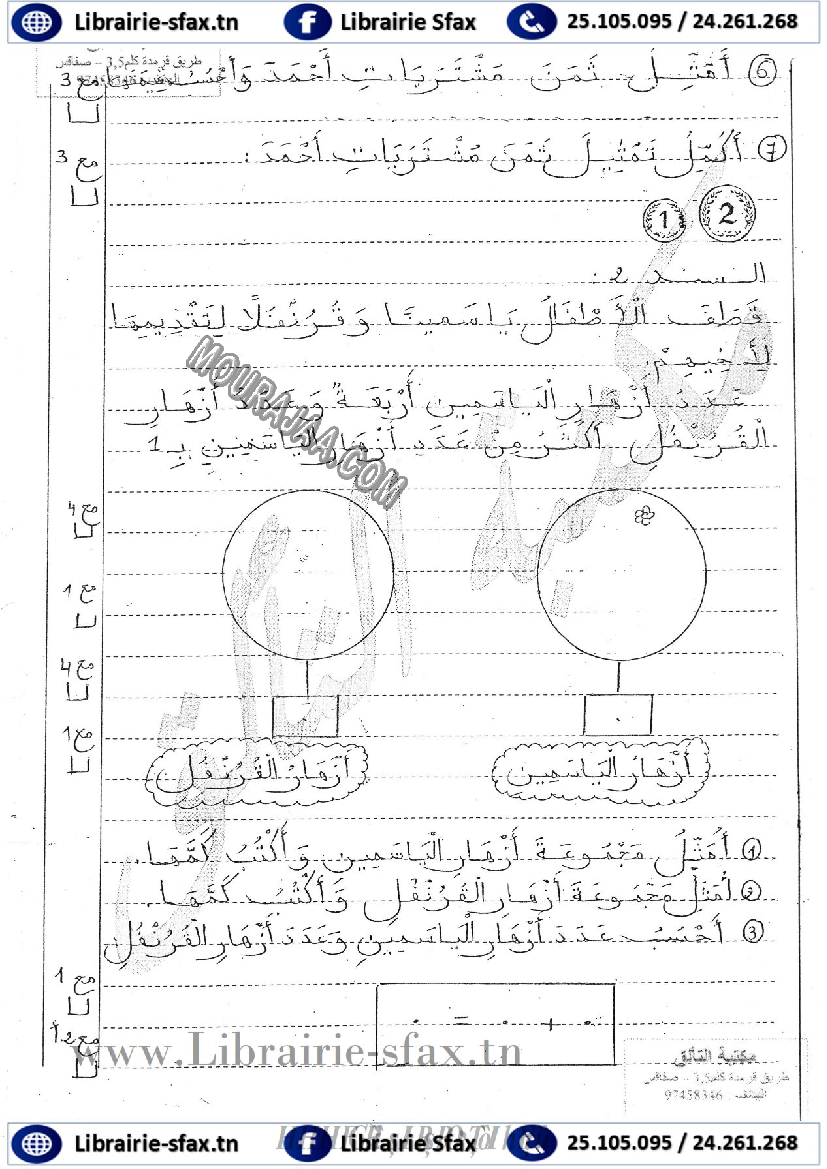 Librairie-sfax.tn Librairie Sfax 25.105.095 / 24.261.268
طريق قرمدة كلم3,5 - صفاقس
⑥ أُمَثِّلُ ثَمَنَ مُشْتَرَيَاتِ أَحْمَدَ وَأَحْسُبُ
مع 3
⑦ أُكَمِّلُ تَمْثِيلَ ثَمَنَ مُشْتَرَيَاتِ أَحْمَدَ :
مع 3
1 2
السـنـد 2 :
قَطَفَ الْأَطْفَالُ يَاسَمِينًا وَ قُرُنْفُلًا لِتَقْدِيمِهَا
لِأُمِّهِمْ
عَدَدُ أَزْهَارِ الْيَاسَمِينِ أَرْبَعَةٌ وَ عَدَدُ أَزْهَارِ
الْقُرُنْفُلِ أَكْثَرُ مِنْ عَدَدِ أَزْهَارِ الْيَاسَمِينِ بِـ 1
MOURAJAA.COM
مع 4
مع 1
مع 4
مع 1
أَزْهَارُ الْيَاسَمِين
أَزْهَارُ الْقُرُنْفُل
① أُمَثِّلُ مَجْمُوعَةَ أَزْهَارِ الْيَاسَمِينِ وَ أَكْتُبُ كَمَّهَا.
② أُمَثِّلُ مَجْمُوعَةَ أَزْهَارِ الْقُرُنْفُلِ وَ أَكْتُبُ كَمَّهَا.
③ أَحْسُبُ عَدَدَ أَزْهَارِ الْيَاسَمِينِ وَ عَدَدَ أَزْهَارِ الْقُرُنْفُلِ
مع 1
. + . = .
مع 2
www.Librairie-sfax.tn
مكتبة التألق
طريق قرمدة كلم3,5 - صفاقس
الهاتف : 97458346
Librairie-sfax.tn Librairie Sfax 25.105.095 / 24.261.268